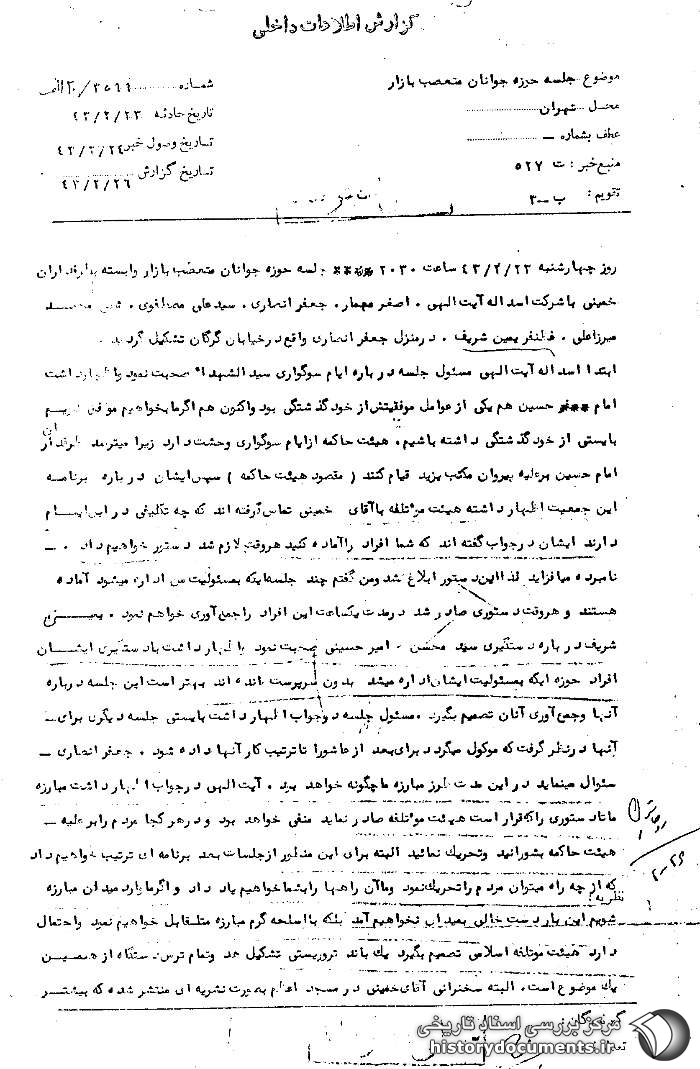 گزارش اطلاعات داخلی
موضوع جلسه حوزه جوانان متعصب بازار
شماره ۳۵۶۹ / ۲۰ الف
محل تهران
تاریخ حادثه ۴۳/۲/۲۳
عطف بشماره —
تاریخ وصول خبر ۴۳/۲/۲۴
منبع خبر : ت ۵۲۷
تاریخ گزارش ۴۳/۲/۲۶
تقویم : ب-۳
روز چهارشنبه ۴۳/۲/۲۳ ساعت ۲۰۳۰ جلسه حوزه جوانان متعصب بازار وابسته بطرفداران
خمینی با شرکت اسداله آیت الهی ، اصغر معمار ، جعفر انصاری ، سید علی مصطفوی ،
میرزاعلی ، غضنفر یمین شریف ، در منزل جعفر انصاری واقع در خیابان گرگان تشکیل گردید .
ابتدا اسداله آیت الهی مسئول جلسه در باره ایام سوگواری سید الشهدا صحبت نمود و اظهار داشت
امام حسین هم یکی از عوامل موفقیتش از خود گذشتگی بود و اکنون هم اگر ما بخواهیم موفق شویم
بایستی از خود گذشتگی داشته باشیم . هیئت حاکمه از ایام سوگواری وحشت دارد زیرا میترسد طرفداران
امام حسین بر علیه پیروان مکتب یزید قیام کنند ( مقصود هیئت حاکمه ) سپس ایشان در باره برنامه
این جمعیت اظهار داشته هیئت موتلفه با آقای خمینی تماس گرفته اند که چه تکلیفی در این ایام
دارند ایشان در جواب گفته اند که شما افراد را آماده کنید هر وقت لازم شد دستور خواهیم داد . —
نامبرده میافزاید لذا این دستور ابلاغ شد و من گفتم چند جلسه ایکه بمسئولیت من اداره میشود آماده
هستند و هر وقت دستوری صادر شد در مدت یکساعت این افراد را جمع آوری خواهم نمود . یمین
شریف در باره دستگیری سید محسن ، امیر حسینی صحبت نمود و اظهار داشت با دستگیری ایشان
افراد حوزه ایکه بمسئولیت ایشان اداره میشد بدون سرپرست مانده اند بهتر است این جلسه در باره
آنها و جمع آوری آنان تصمیم بگیرد . مسئول جلسه در جواب اظهار داشت بایستی جلسه دیگری برای —
آنها در نظر گرفت که موکول میگردد برای بعد از عاشورا تا ترتیب کار آنها داده شود . جعفر انصاری —
سئوال مینماید در این مدت طرز مبارزه ما چگونه خواهد بود . آیت الهی در جواب اظهار داشت مبارزه
ما تا دستوری را که قرار است هیئت موتلفه صادر نماید منفی خواهد بود و در هر کجا مردم را بر علیه —
هیئت حاکمه بشورانید و تحریک نمائید البته برای این منظور از جلسات بعد برنامه ای ترتیب خواهیم داد
که از چه راه میتوان مردم را تحریک نمود و ما آن راهها را بشما خواهیم یاد داد و اگر ما وارد میدان مبارزه
نظریه :
شویم این بار دست خالی بمیدان نخواهیم آمد بلکه با اسلحه گرم مبارزه متقابل خواهیم نمود و احتمال
دارد هیئت موتلفه اسلامی تصمیم بگیرد یک باند تروریستی تشکیل دهد و تمام ترس دستگاه از همین
یک موضوع است . البته سخنرانی آقای خمینی در مسجد اعظم بصورت نشریه ای منتشر شده که بیشتر
گیرندگان
مرکز بررسی اسناد تاریخی
historydocuments.ir